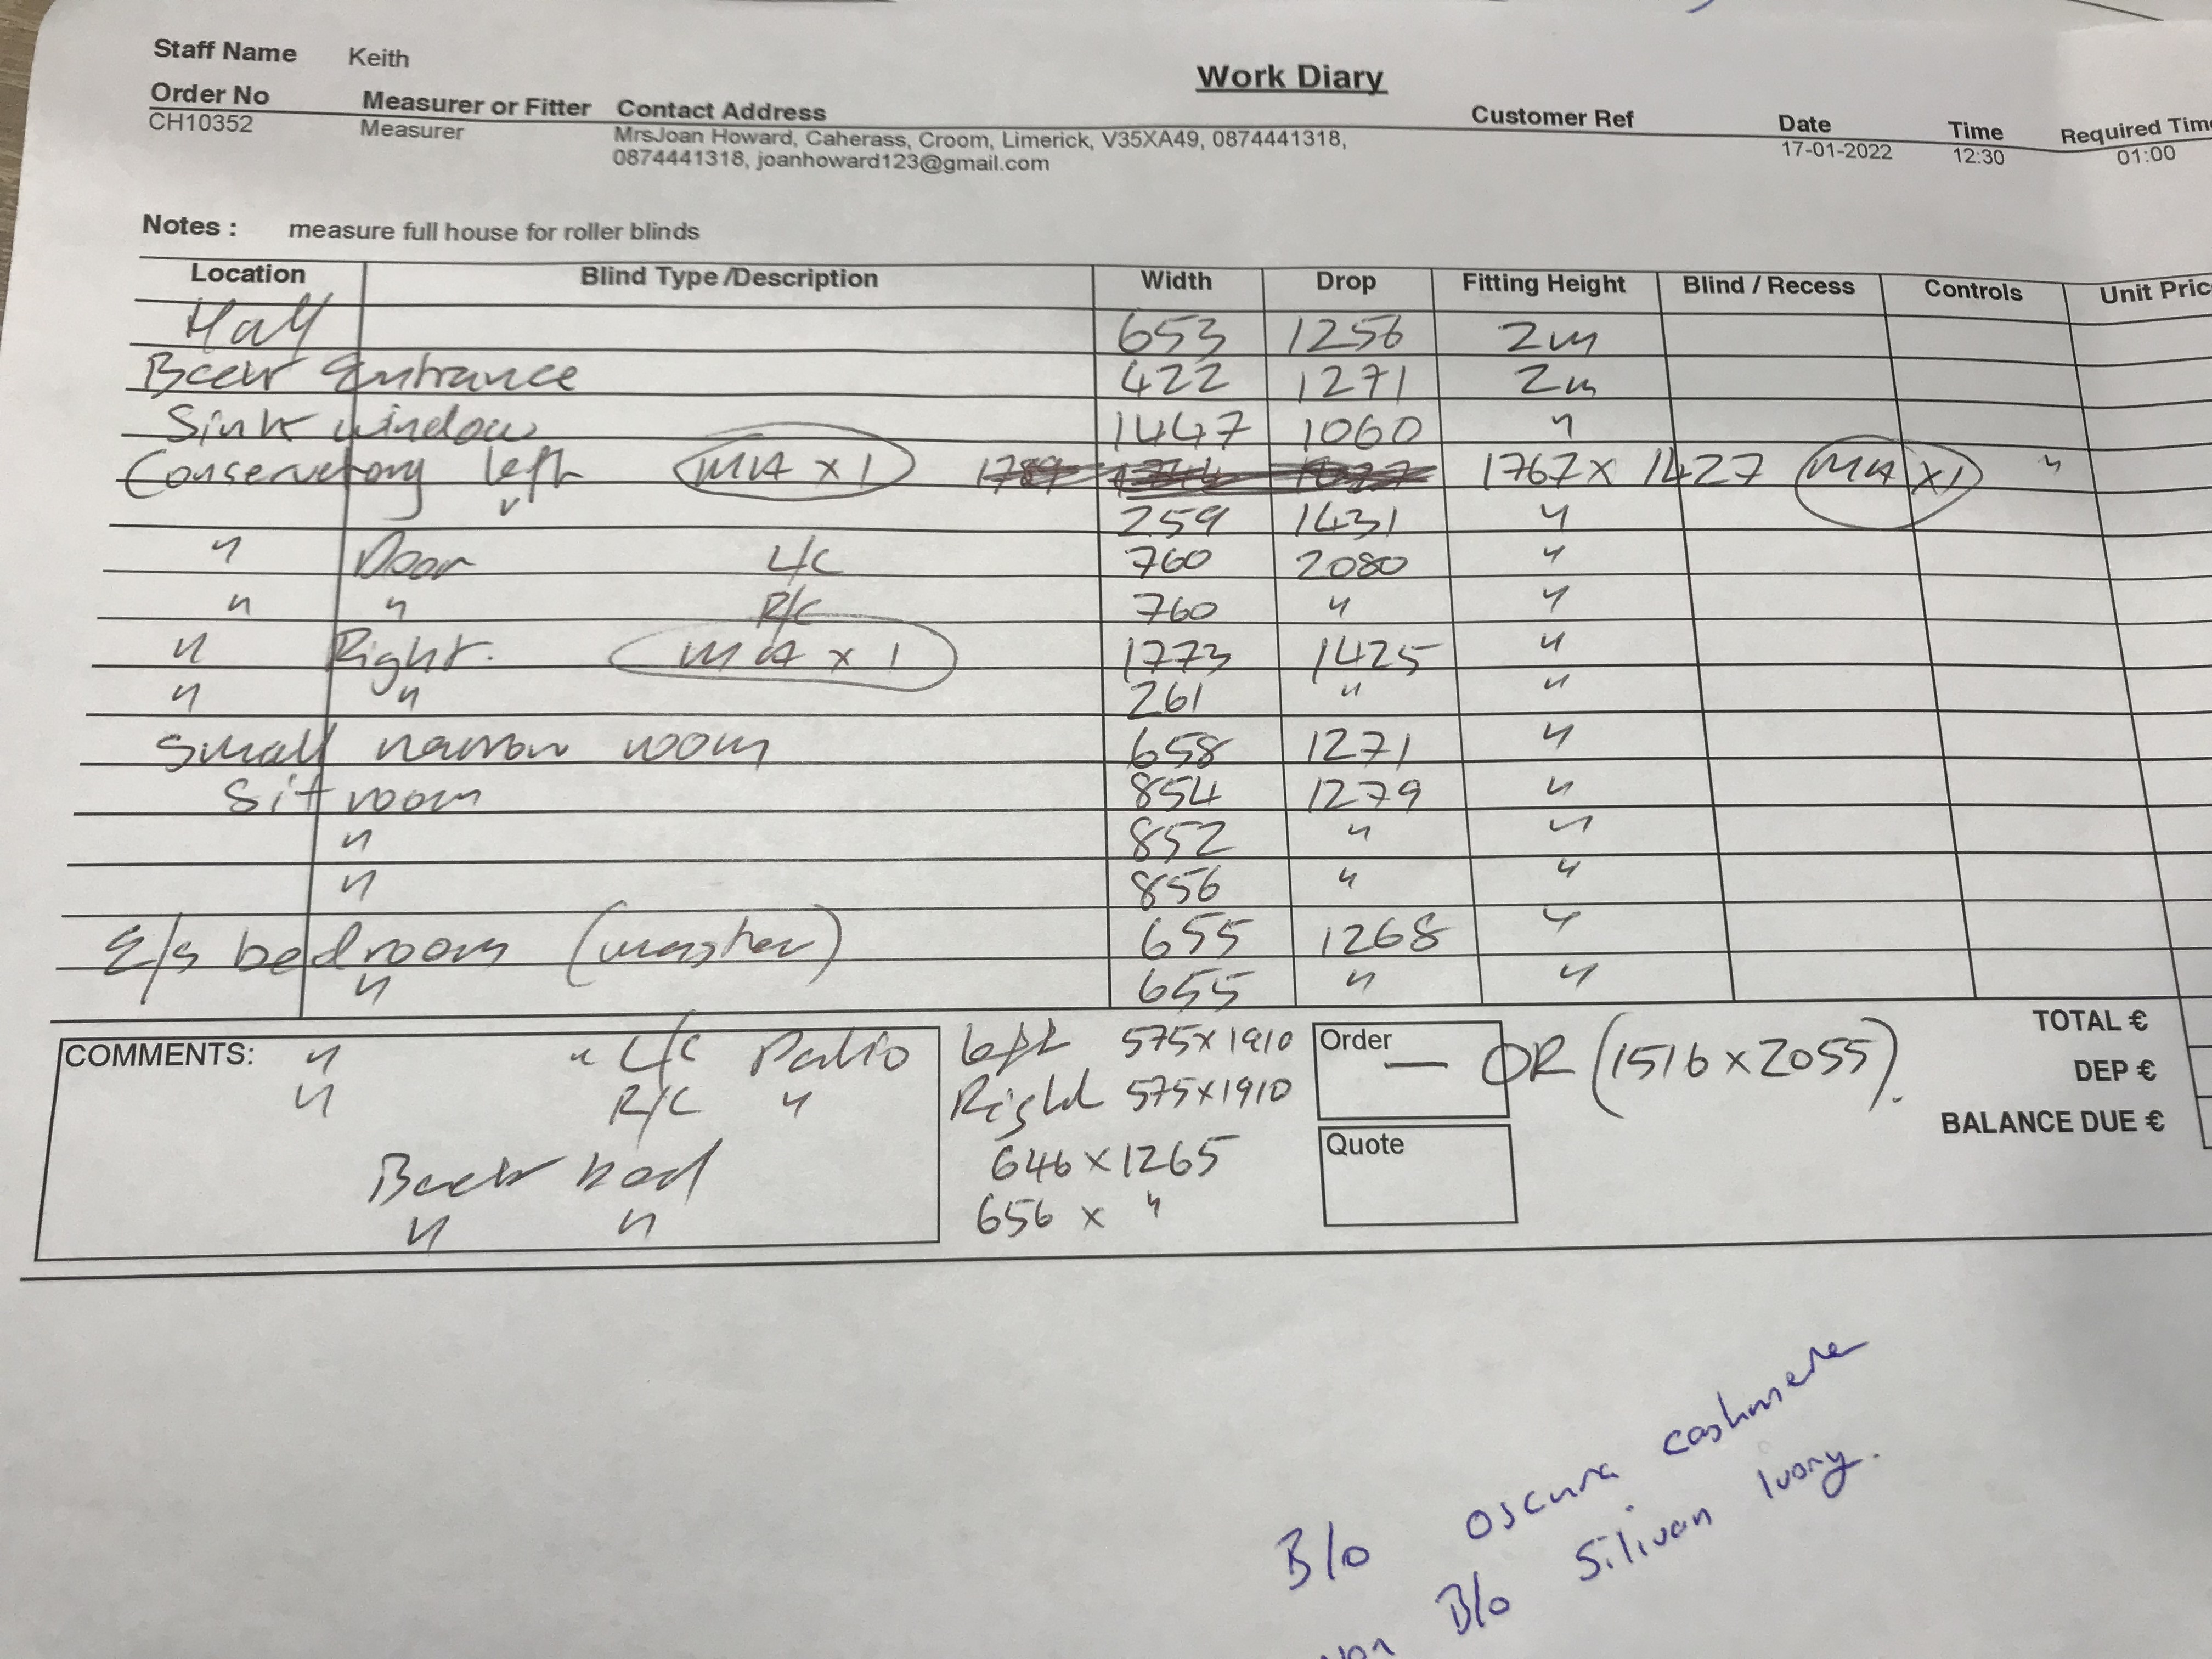 Staff Name Keith
Work Diary
Order No Measurer or Fitter Contact Address Customer Ref Date Time Required Time
CH10352 Measurer MrsJoan Howard, Caherass, Croom, Limerick, V35XA49, 0874441318, 17-01-2022 12:30 01:00
0874441318, joanhoward123@gmail.com
Notes : measure full house for roller blinds
Location Blind Type /Description Width Drop Fitting Height Blind / Recess Controls Unit Pric
Hall 653 1256 2m
Back Entrance 422 1271 2m
Sink window 1447 1060 "
Conservatory left MA x 1 1767 x 1427 MA x 1 "
" 259 1431 "
" Door L/C 760 2080 "
" " R/C 760 " "
" Right. MA x 1 1773 1425 "
" " 261 " "
Small narrow room 658 1271 "
Sit room 854 1279 "
" 852 " "
" 856 " "
E/s bedroom (master) 655 1268 "
" 655 " "
COMMENTS: " " L/C Patio left 575x1910 Order — OR (1516 x 2055). TOTAL €
" R/C " Right 575x1910 DEP €
BALANCE DUE €
Back bed 646 x 1265 Quote
" " 656 x "
B/o oscura cashmere
B/o Silivan Ivory.